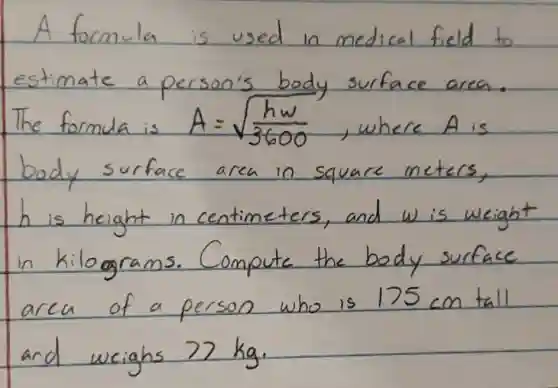 A formula is used in medical field to
estimate a person's body surface area.
The formula is A = √(hw/3600), where A is
body surface area in square meters,
h is height in centimeters, and w is weight
in kilograms. Compute the body surface
area of a person who is 175 cm tall
and weighs 77 kg.